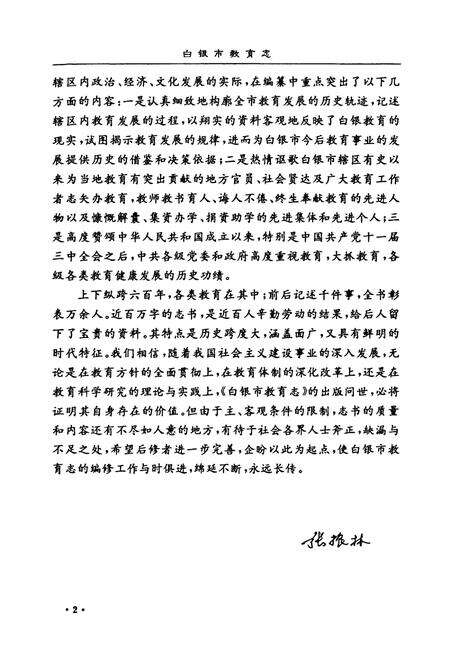 白银市教育志
辖区内政治、经济、文化发展的实际,在编纂中重点突出了以下几
方面的内容:一是认真细致地构廓全市教育发展的历史轨迹,记述
辖区内教育发展的过程,以翔实的资料客观地反映了白银教育的
现实,试图揭示教育发展的规律,进而为白银市今后教育事业的发
展提供历史的借鉴和决策依据;二是热情讴歌白银市辖区有史以
来为当地教育有突出贡献的地方官员、社会贤达及广大教育工作
者志矢办教育,教师教书育人、诲人不倦、终生奉献教育的先进人
物以及慷慨解囊、集资办学、捐资助学的先进集体和先进个人;三
是高度赞颂中华人民共和国成立以来,特别是中国共产党十一届
三中全会之后,中共各级党委和政府高度重视教育,大抓教育,各
级各类教育健康发展的历史功绩。
上下纵跨六百年,各类教育在其中;前后记述千件事,全书彰
表万余人。近百万字的志书,是近百人辛勤劳动的结果,给后人留
下了宝贵的资料。其特点是历史跨度大,涵盖面广,又具有鲜明的
时代特征。我们相信,随着我国社会主义建设事业的深入发展,无
论是在教育方针的全面贯彻上,在教育体制的深化改革上,还是在
教育科学研究的理论与实践上,《白银市教育志》的出版问世,必将
证明其自身存在的价值。但由于主、客观条件的限制,志书的质量
和内容还有不尽如人意的地方,有待于社会各界人士斧正,缺漏与
不足之处,希望后修者进一步完善,企盼以此为起点,使白银市教
育志的编修工作与时俱进,绵延不断,永远长传。
张振林
·2·